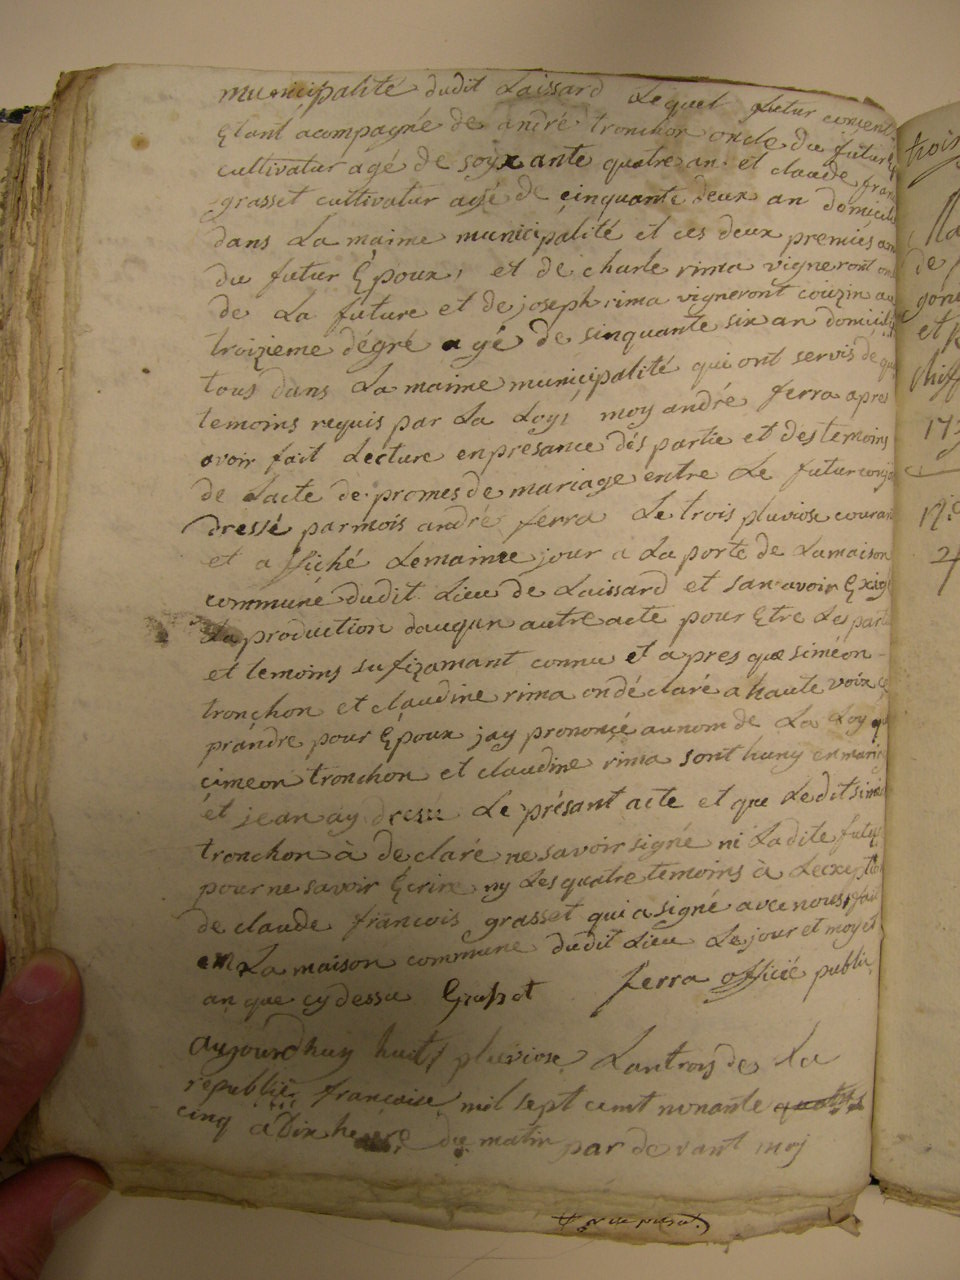 municipalité dudit Laissard Lequel futur consent
Etant acompagné de andré tronchon oncle du futur
cultivatur agé de soixante quatre an et claude fran
grasset cultivatur agé de cinquante deux an domicilie
dans La maime municipalité et ces deux premies
du futur Epoux, et de charle rima vigneront
de La future et de joseph rima vigneront couzin au
troizieme dégré agé de sinquante six an domicilié
tous dans La maime municipalité qui ont servis de
temoins requis par La Loy, moy andré ferra apres
avoir fait Lecture en présance dés partie et des temoins
de Lacte de promes de mariage entre Le futur conjo
dressé par mois andré ferra Le trois pluviose couran
et affiché Le maime jour a La porte de La maison
commune dudit Lieu de Laissard et san avoir Exigé
La production dauqun autre acte pour Etre Les parti
et temoins sufizamant connu et apres que siméon
tronchon et claudine rima on déclaré a haute voix ce
prandre pour Epoux jay prononcé au nom de La Loy que
cimeon tronchon et claudine rima sont huny en mariag
et jean ay dressé Le présant acte et que Ledit simé
tronchon à declaré ne savoir signé ni Ladite futur
pour ne savoir Ecrire ny Les quatre temoins à Lexceptio
de claude francois grasset qui a signé avec nous, fait
en La maison commune dudit Lieu Le jour et moy et
an que cy dessu Grasset ferra officié public
aujourdhuy huit pluviose Lan trois de La
republiē francaise mil sept cent nonante
cinq à Dix heure du matin par devant moj